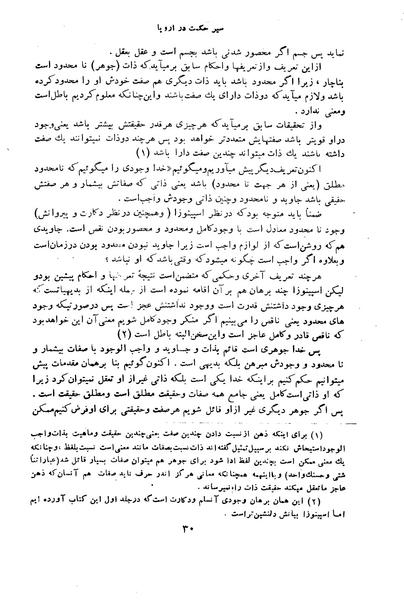 سیر حکمت در اروپا
نماید پس جسم اگر محصور شدنی باشد بجسم است و عقل بعقل.
از این تعریف وازتعریفها واحکام سابق برمیآید که ذات (جوهر) نا محدود است
بناچار، زیرا اگر محدود باشد باید ذات دیگری هم صفت خودش او را محدود کرده
باشد ولازم میآید که دوذات دارای یك صفت باشند واین چنانکه معلوم کردیم باطل است
ومعنی ندارد.
واز تحقیقات سابق برمیآید که هرچیزی هرقدر حقیقتش بیشتر باشد یعنی وجود
دراو قویتر باشد صفتهایش متعددتر خواهد بود پس هرچند دوذات نمیتوانند یك صفت
داشته باشند یك ذات میتواند چندین صفت دارا باشد (۱)
اکنون تعریف دیگر پیش میآوریم ومیگوئیم «خدا وجودی را میگوئیم که نامحدود
مطلق (یعنی از هر جهت نا محدود) باشد یعنی ذاتی که صفاتش بیشمار و هر صفتش
حقیقی باشد جاوید و نامحدود وچنین ذاتی وجودش واجب است.
ضمناً باید متوجه بود که در نظر اسپینوزا (وهمچنین در نظر دکارت و پیروانش)
وجود نا محدود معادل است با وجود کامل ومحدود و محصور بودن نقص است. جاویدی
هم که روشن است که از لوازم واجب است زیرا جاوید نبودن محدود بودن در زمان است
وبعلاوه اگر واجب است چگونه میشود که وقتی باشد که او نباشد؟
هرچند تعریف آخری وحکمی که متضمن است نتیجهٔ تعریفها و احکام پیشین بودو
لیکن اسپینوزا چند برهان هم بر آن اقامه نموده است از جمله اینکه از بدیهیات است که
هرچیزی وجود داشتنش قدرت است ووجود نداشتنش عجز است پس در صورتیکه وجود
های محدود یعنی ناقص را می‌بینیم اگر منکر وجود کامل شویم معنی آن این خواهد بود
که ناقص قادر وکامل عاجز است واین سخن البته باطل است (۲)
پس خدا جوهری است قائم بذات و جاوید و واجب الوجود با صفات بیشمار و
نا محدود و وجودش مبرهن بلکه بدیهی است. اکنون گوئیم بنا برهمان مقدمات پیش
میتوانیم حکم کنیم براینکه خدا یکی است بلکه ذاتی غیر از او تعقل نمیتوان کرد زیرا
که او ذاتی است کامل یعنی جامع همه صفات وحقیقت مطلق است و مطلق حقیقت است.
پس اگر جوهر دیگری غیر ازاو قائل شویم هرصفت وحقیقتی برای او فرض کنیم ممکن
(۱) برای اینکه ذهن ازنسبت دادن چندین صفت یعنی چندین حقیقت وماهیت بذات واجب
الوجود استیحاش نکند برسبیل تمثیل گفته‌اند ذات نسبت بصفات مانند معنی است نسبت بلفظ، وچنانکه
یك معنی ممکن است بچندین لفظ ادا شود برای جوهر هم میتوان صفات بسیار قائل شد (عباراتنا
شتی وحسنك واحد) وبااینهمه همچنانکه معانی هرگز اندر حرف ناید صفات هم آنسان که ذهن
عاجز ماتعقل میکند حقیقت ذات را نمیرساند.
(۲) این همان برهان وجودی آنسلم ودکارت است که درجلد اول این کتاب آورده ایم
اما اسپینوزا بیانش دلنشین‌تر است.
۳۰